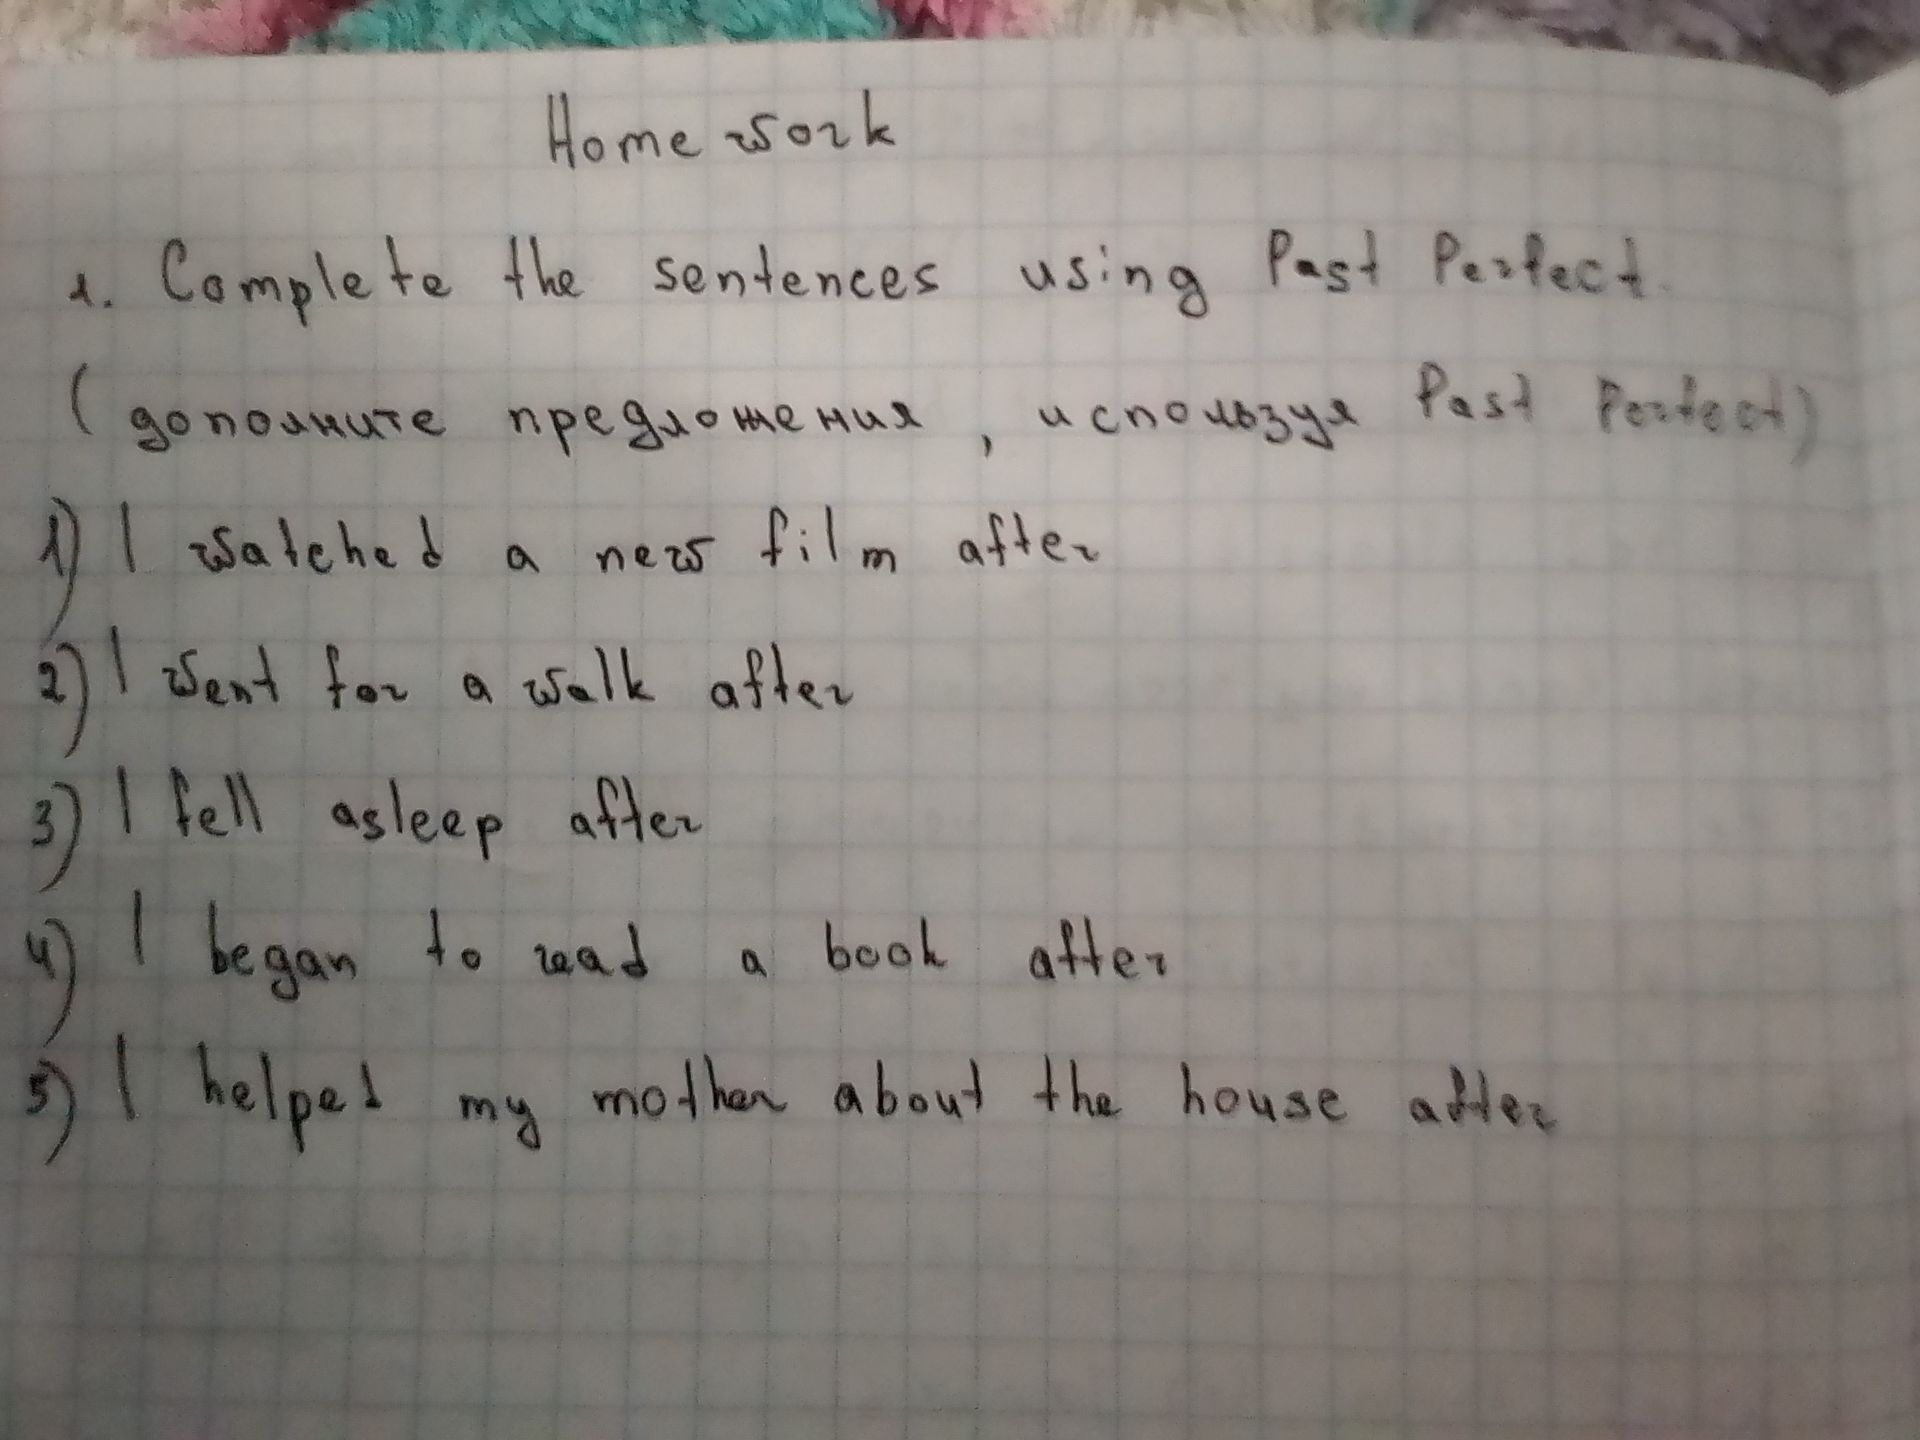 Home work
1. Complete the sentences using Past Perfect.
(дополните предложения, используя Past Perfect)
1) I watched a new film after
2) I went for a walk after
3) I fell asleep after
4) I began to read a book after
5) I helped my mother about the house after